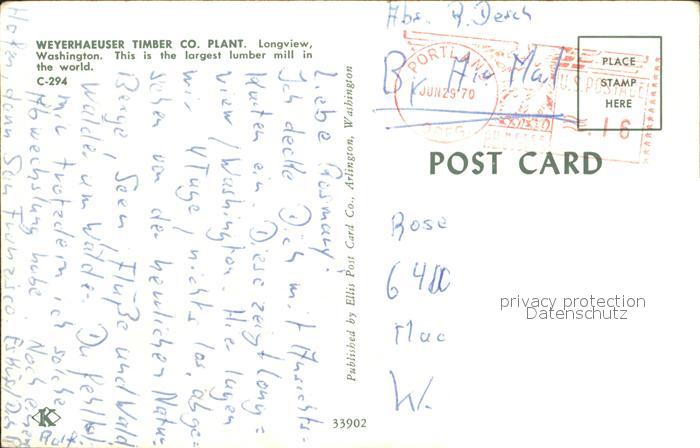 WEYERHAEUSER TIMBER CO. PLANT. Longview,
Washington. This is the largest lumber mill in
the world.
C-294
Liebe Rosmarl!
Ich decke Dich mit Ansichts-
karten ein. Diese zeigt Long=
view/Washington. Hier lagen
wir 4 Tage, nichts los, abge=
sehen von der herrlichen Natur.
Berge, Seen, Flüße und Wald
Wälder um Wälder. Du fehlst
mir trotzdem ich solche
Abwechslung habe. Noch einen
Hafen, dann San Franzisco.
Ralf
K
Published by Ellis Post Card Co., Arlington, Washington
33902
Abs. R. Desch
By Air Mail
PORTLAND
JUN 29 70
OREG.
U.S. POSTAGE
.16
PLACE
STAMP
HERE
POST CARD
Rose
6480
W.
privacy protection
Datenschutz